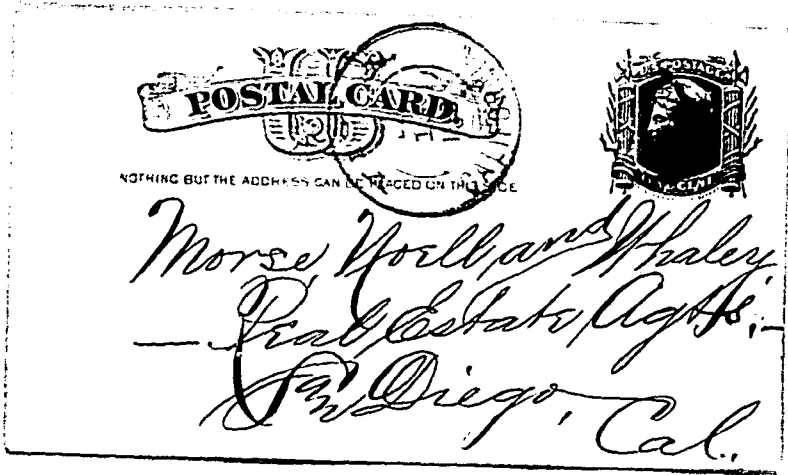 U.S. POSTAGE
POSTAL CARD.
ONE CENT
NOTHING BUT THE ADDRESS CAN BE PLACED ON THIS SIDE
Morse, Noell, and Whaley,
— Real Estate, Agt's, —
San Diego,
Cal.,